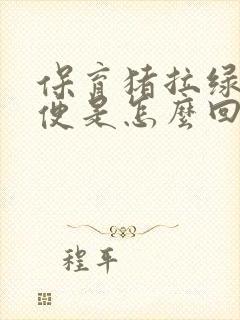 保育猪拉绿
便是怎麼回
程平